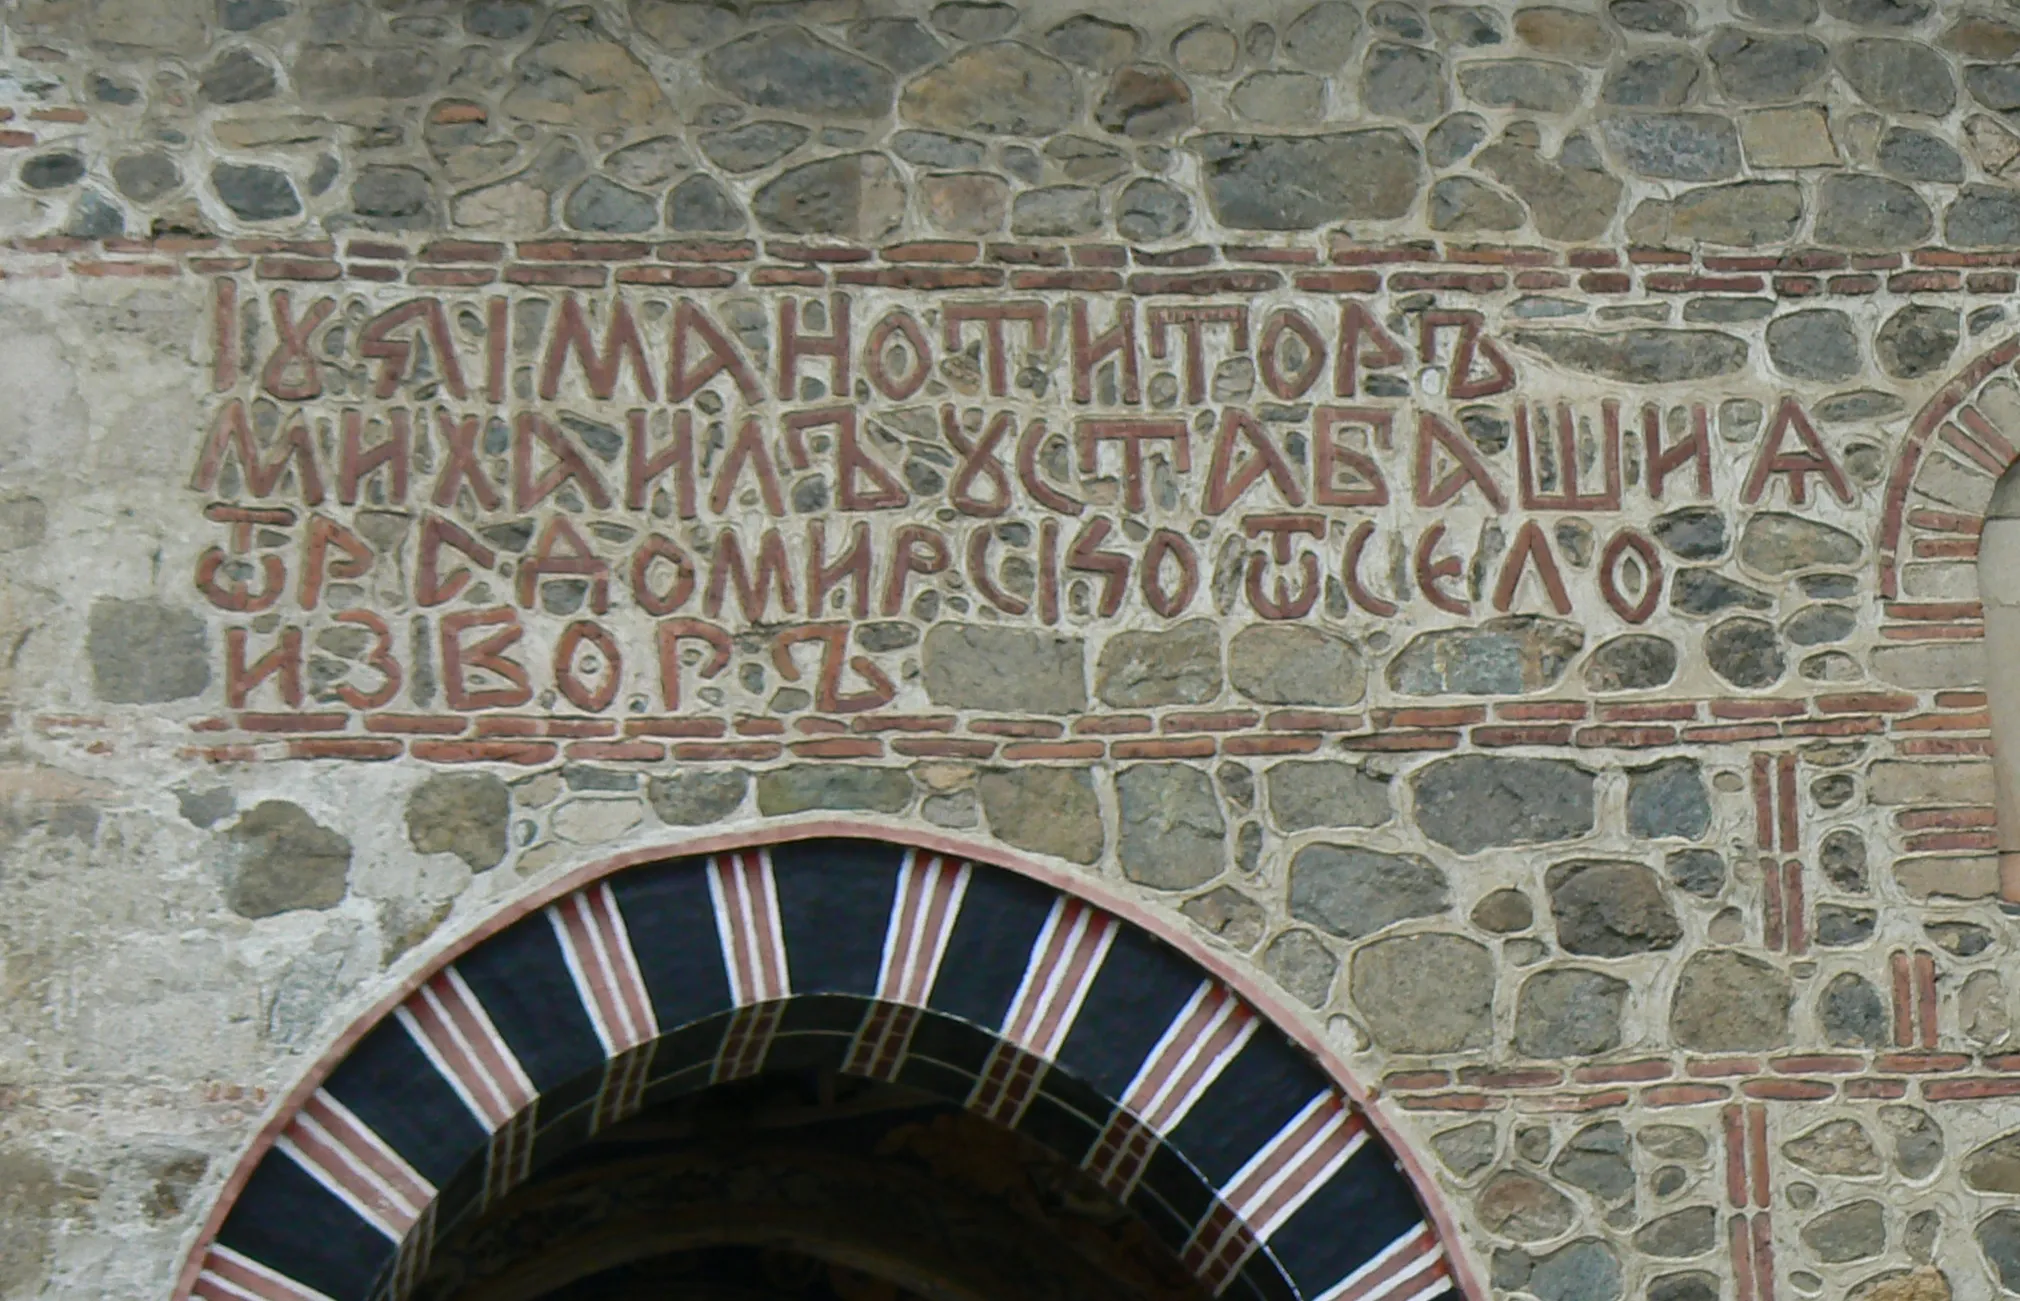 ІꙊЯІМАНОТИТОРЪ
МИХАИЛЪ ꙊСТАБАШИѦ
ѾРАДОМИРСІЅО ѾСЕЛО
ИЗВОРЪ